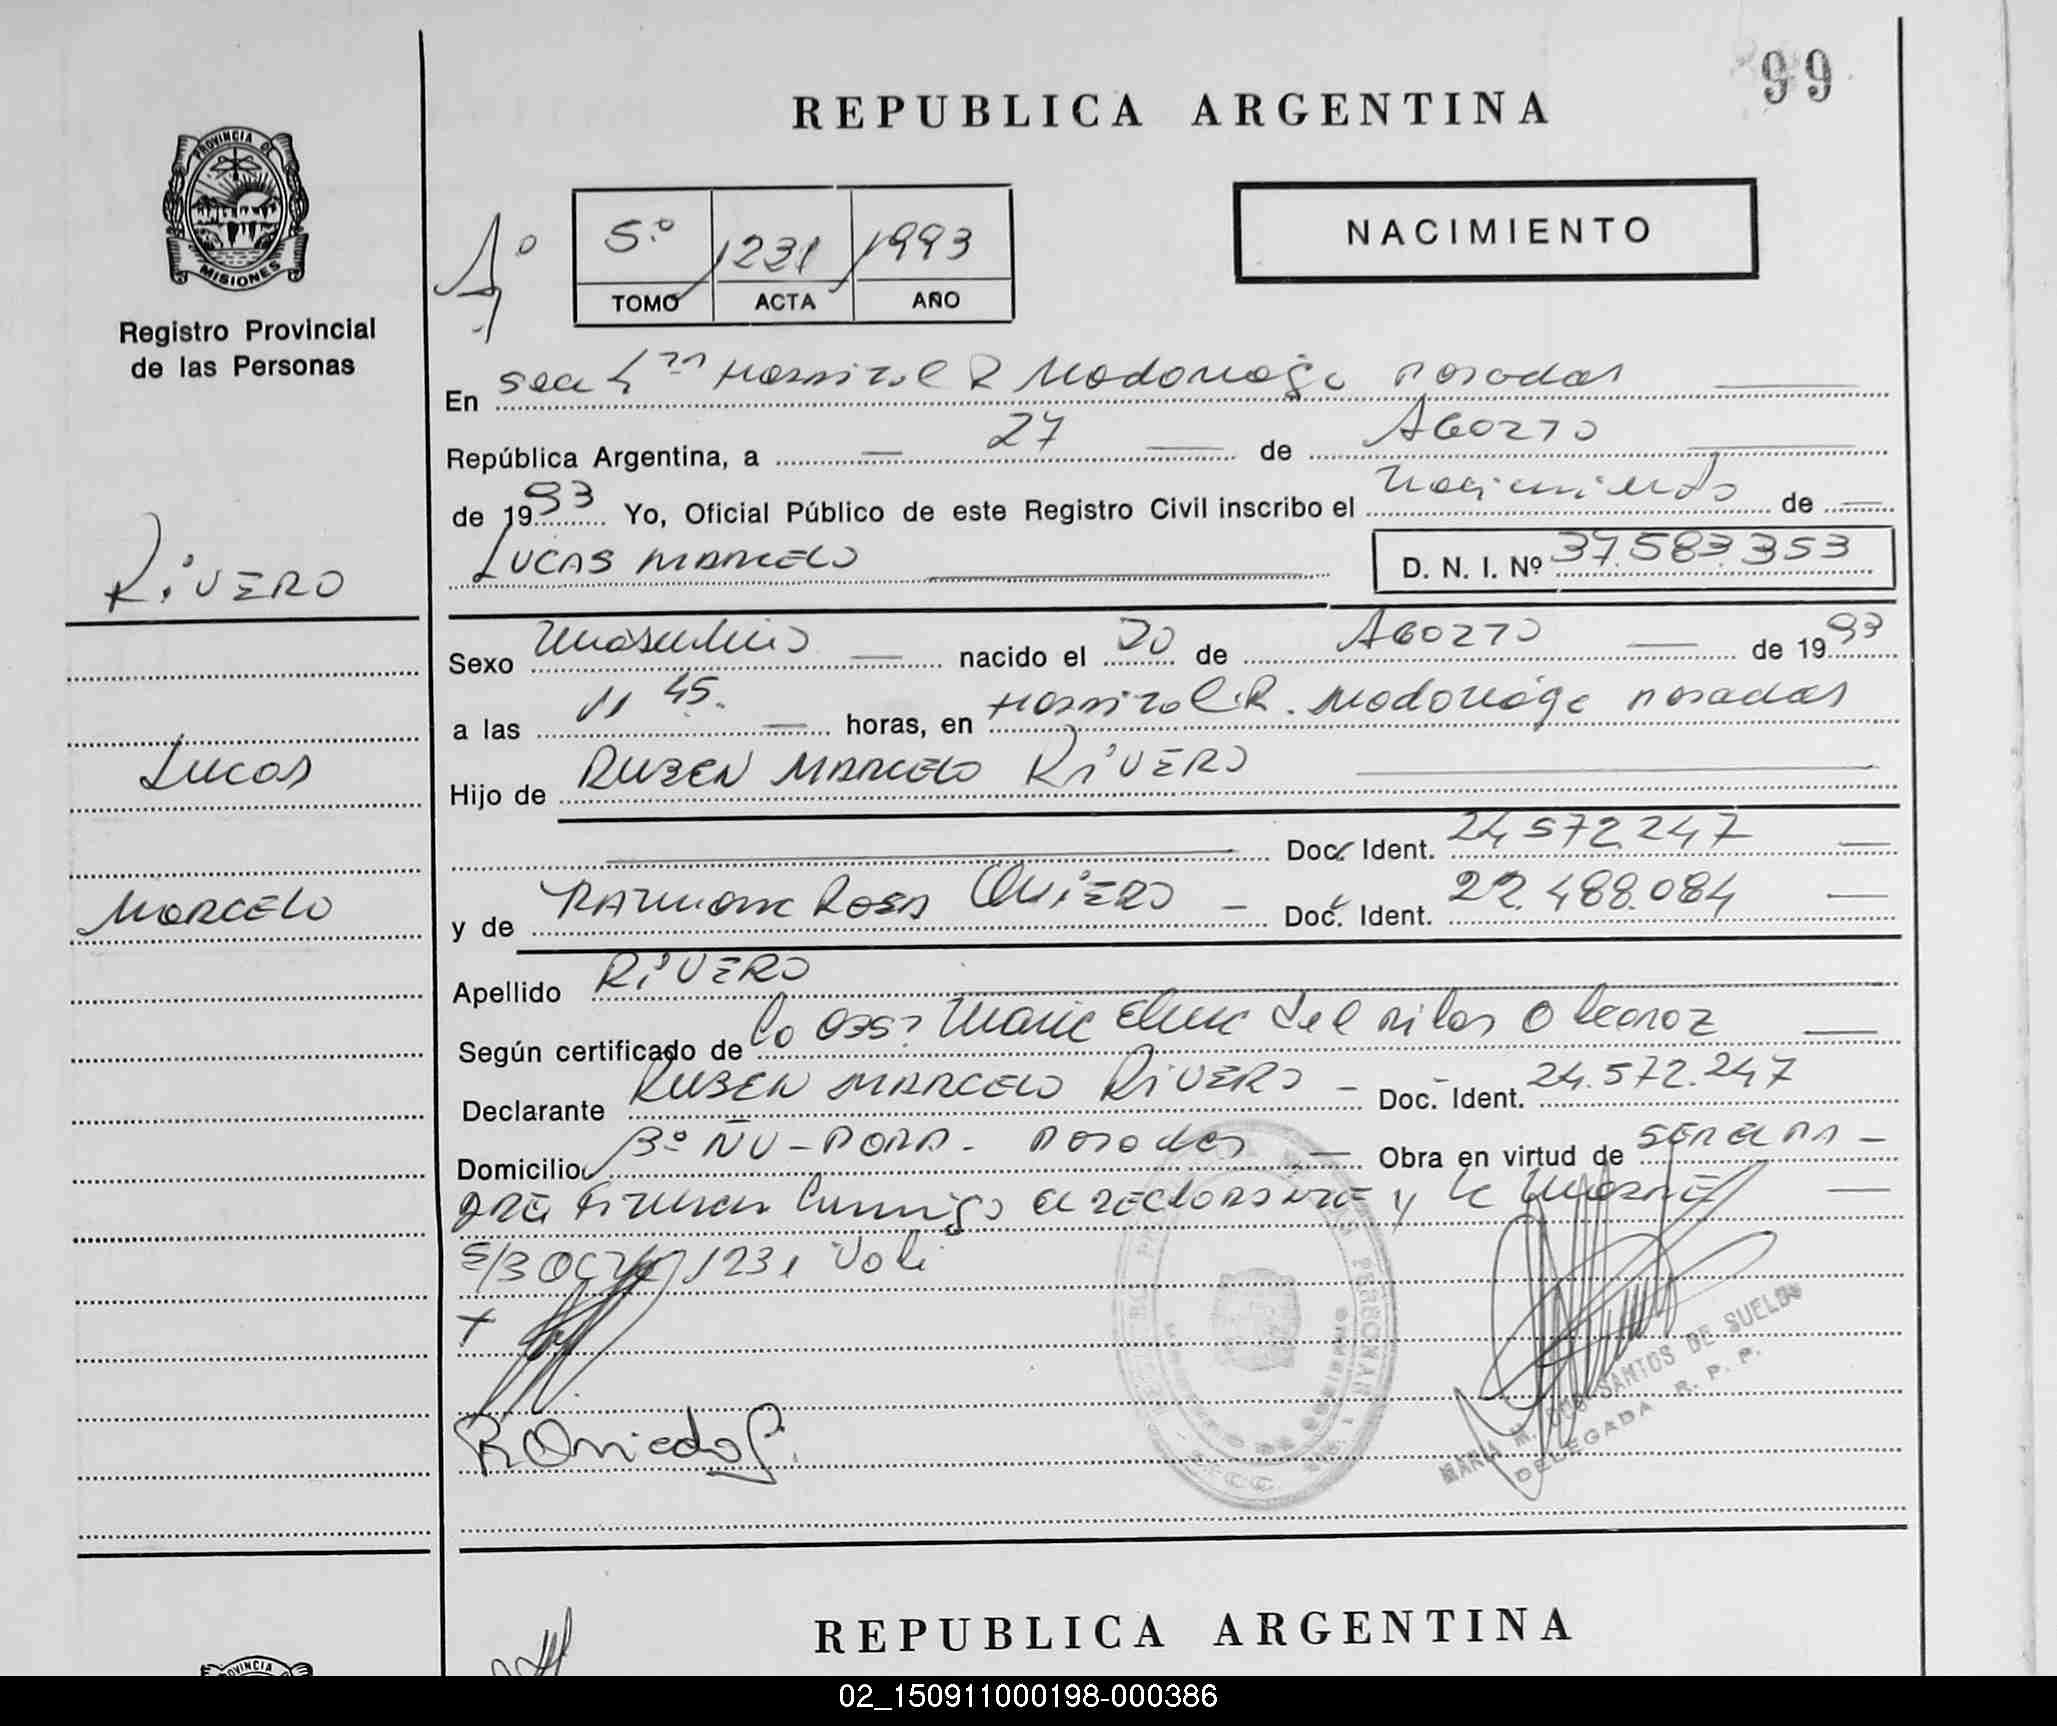 99
REPUBLICA ARGENTINA
PROVINCIA DE
MISIONES
Registro Provincial
de las Personas
5º 1231 1993
TOMO ACTA AÑO
NACIMIENTO
En Hospital R Madariaga Posadas
República Argentina, a 27 de Agosto
de 1993 Yo, Oficial Público de este Registro Civil inscribo el nacimiento de
LUCAS MARCELO D. N. I. Nº 37.583.353
RIVERO
Sexo Masculino nacido el 20 de Agosto de 1993
a las 11 45. horas, en Hospital R. Madariaga Posadas
Lucas
Hijo de RUBEN MARCELO RIVERO
Doc. Ident. 24.572.247
Marcelo
y de Ramona Rosa Doc. Ident. 22.488.084
Apellido RIVERO
Según certificado de la Obst. Maria Elena del Pilar
Declarante RUBEN MARCELO RIVERO - Doc. Ident. 24.572.247
Domicilio Bº ÑU-PORA. Posadas Obra en virtud de ser el PA-
DRE Firman conmigo el declarante y la Madre
1231 Vale
MARIA M. DOS SANTOS DE SUELDO
DELEGADA R. P. P.
REPUBLICA ARGENTINA
PROVINCIA
02_150911000198-000386